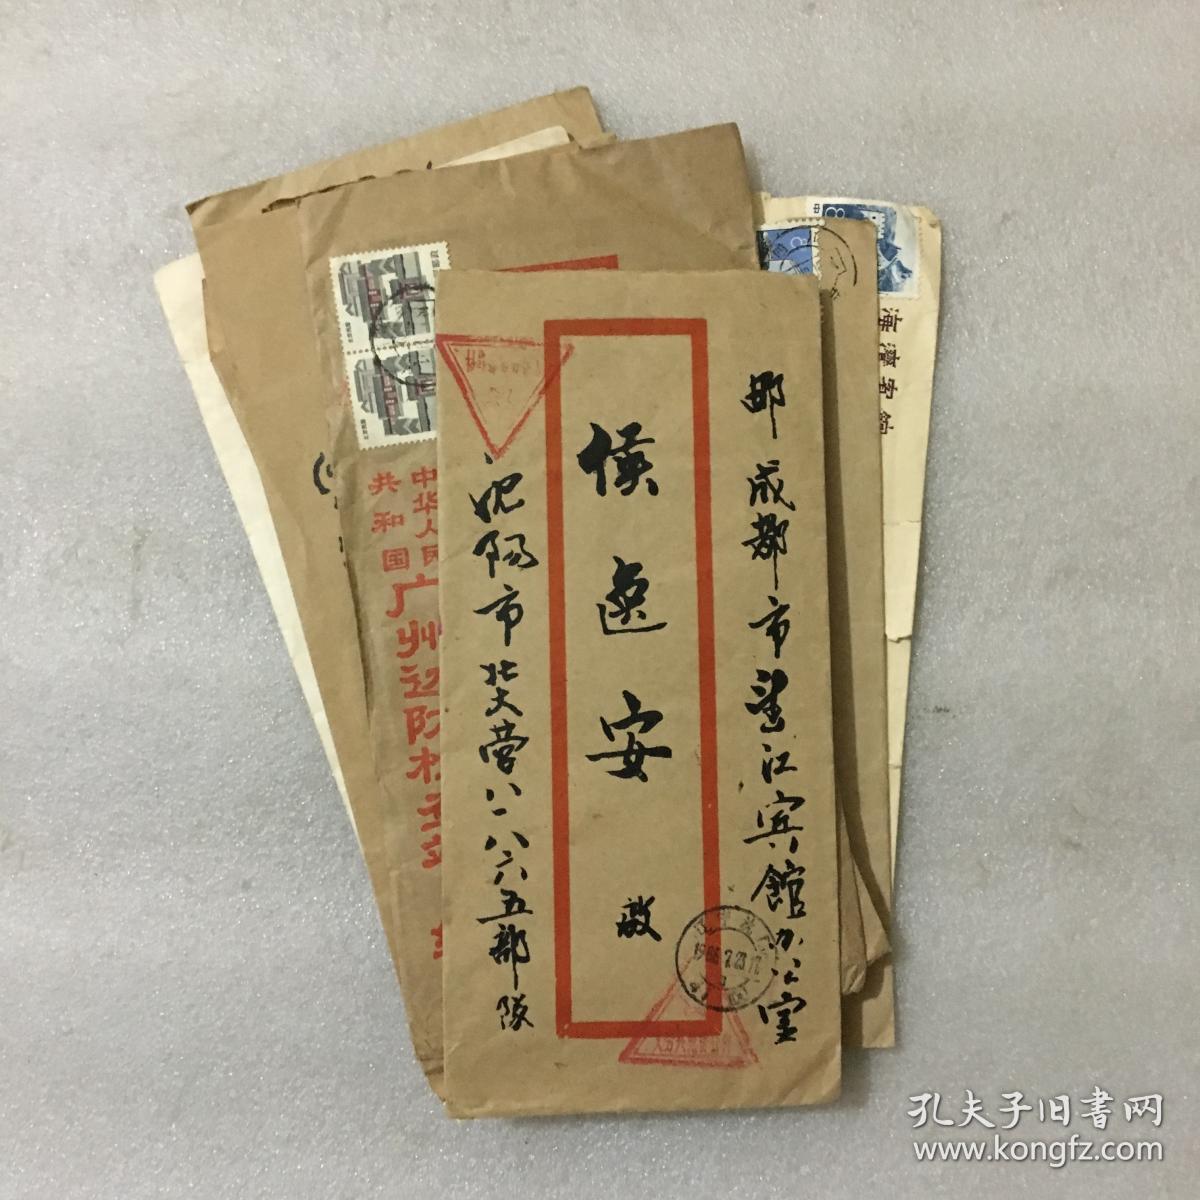 邮成都市望江宾馆办公室
侯逸安
啟
沈阳市北大营八一八六五部队
1986.7.23.17
中华人民
共和国
广州边防检查站
海湾宾馆
孔夫子旧书网
www.kongfz.com